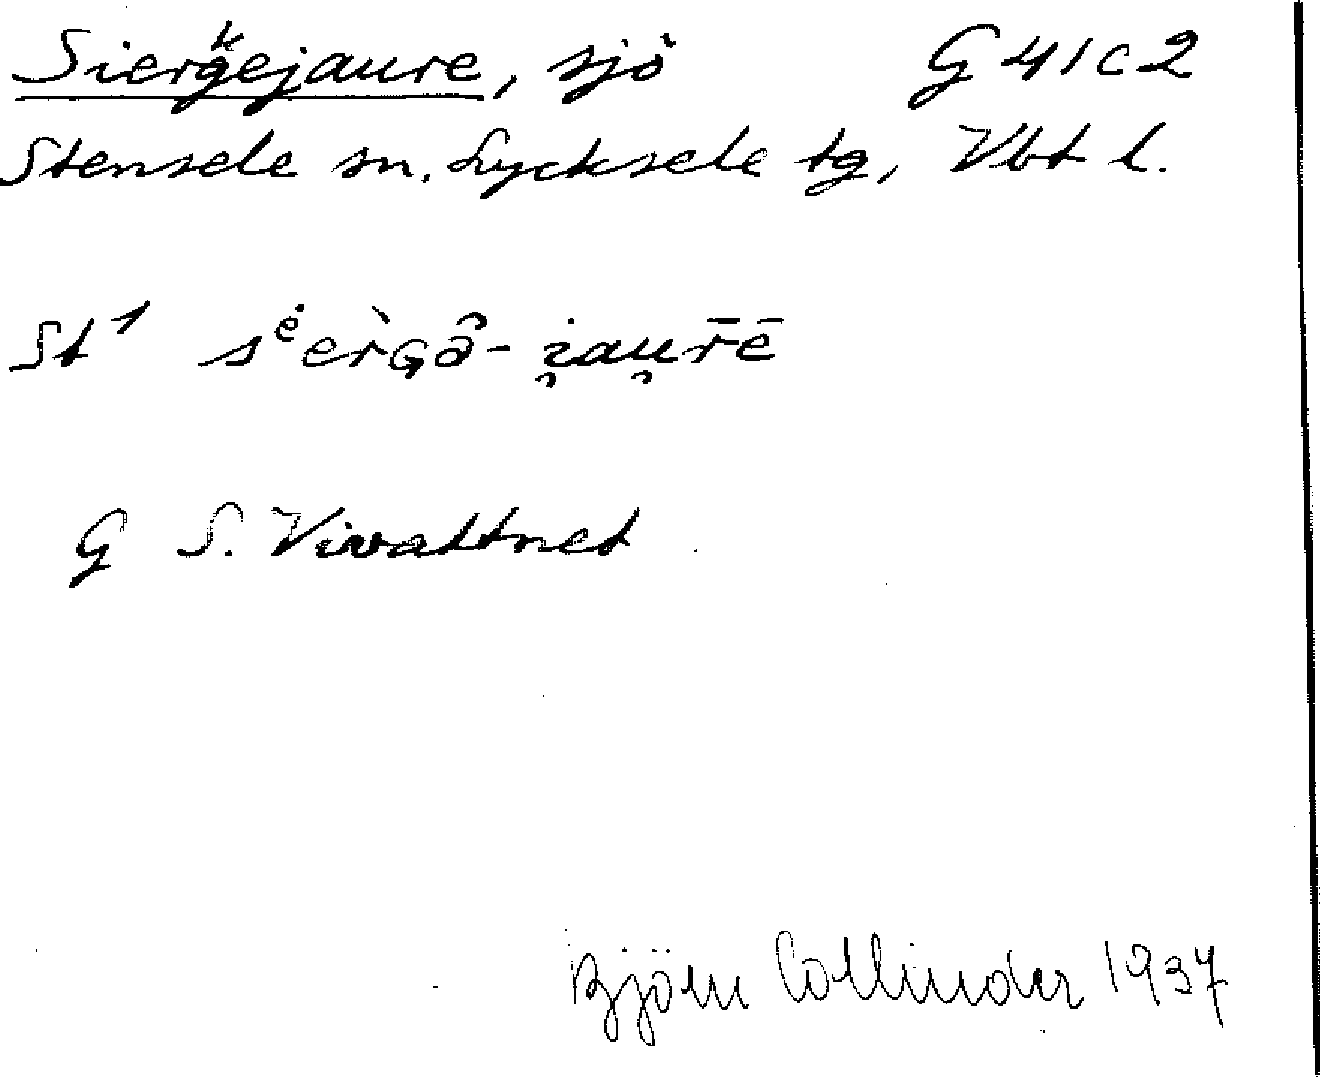 Siergejaure, sjö G 41 c 2
Stensele sn. Lycksele tg, Vbt l.
St¹ sėer̀ɢâ- i̯au̯r̄ē
G S. Vivattnet
Björn Collinder 1937